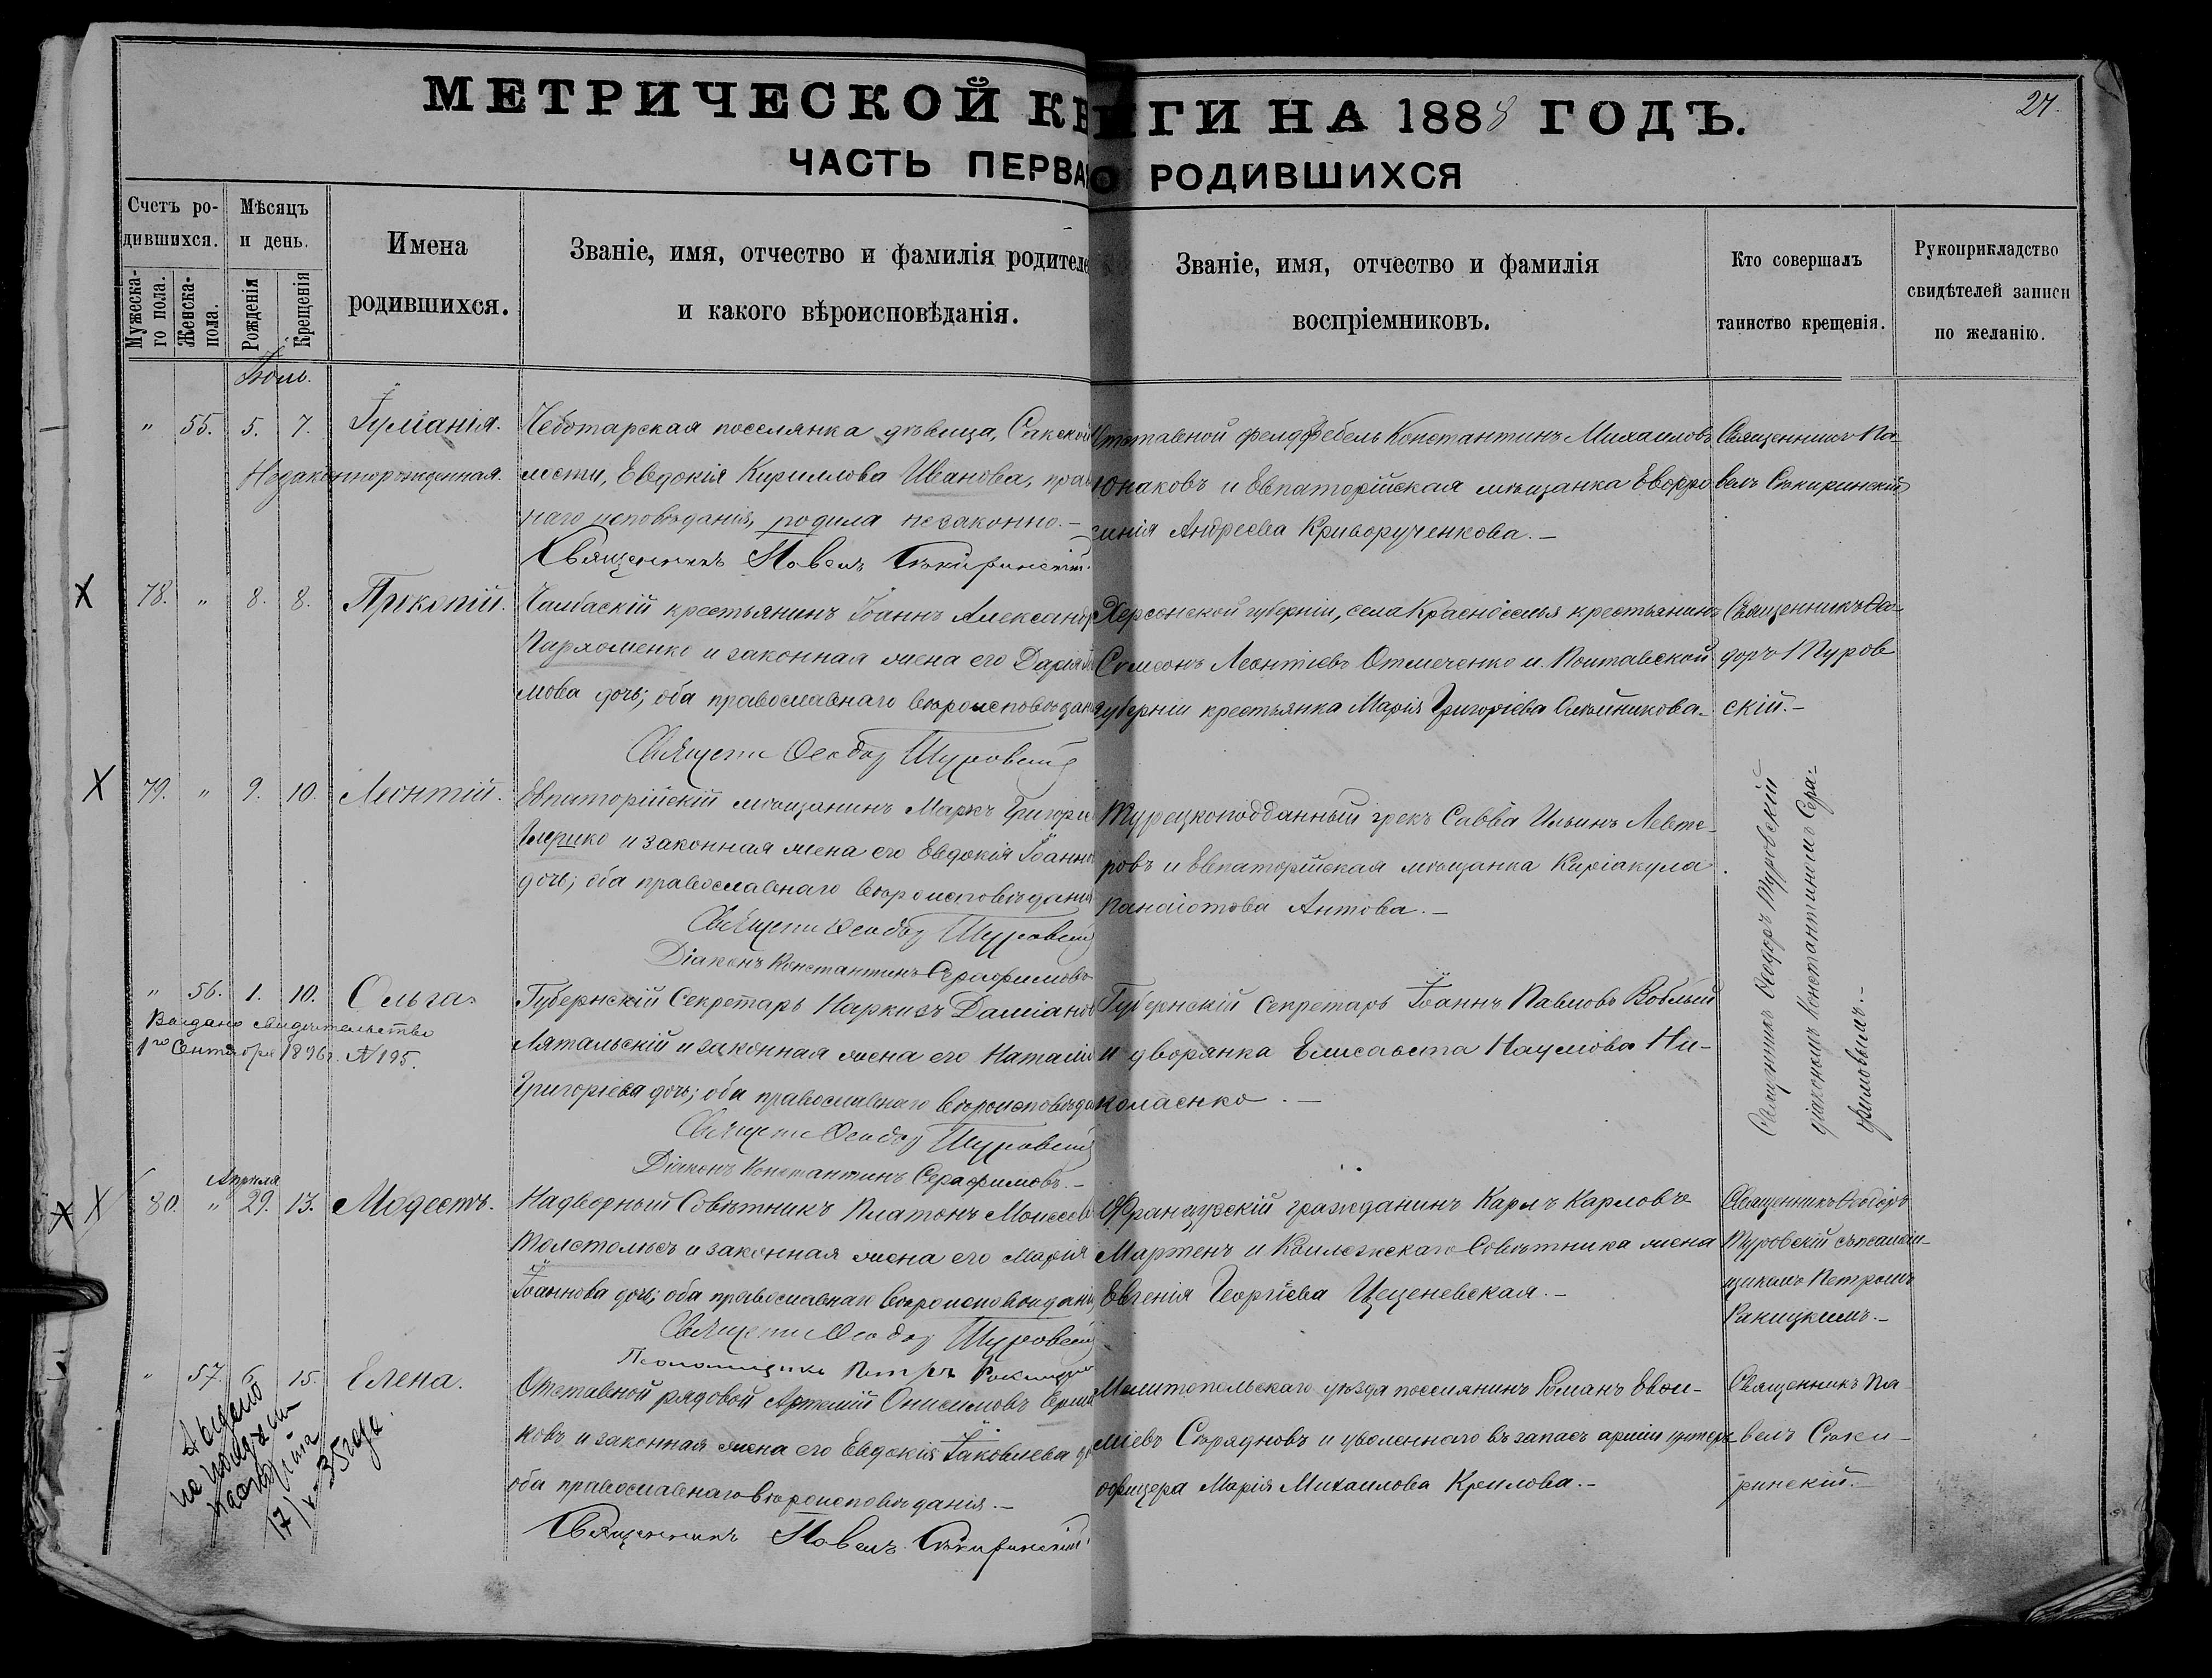 МЕТРИЧЕСКОЙ КНИГИ НА 1888 ГОДЪ.
27.
ЧАСТЬ ПЕРВАЯ О РОДИВШИХСЯ
Счетъ ро-
дившихся.
Мужеска-
го пола.
Женска-
пола.
Мѣсяцъ
и день.
Рожденія
Крещенія
Имена
родившихся.
Званіе, имя, отчество и фамилія родителе
и какого вѣроисповѣданія.
Званіе, имя, отчество и фамилія
воспріемниковъ.
Кто совершалъ
таинство крещенія.
Рукоприкладство
свидѣтелей записи
по желанію.
Іюль.
" 55. 5. 7. Іуліанія.
Незаконнорожденная.
Чеботарская поселянка дѣвица, Сакской
лости, Евдокія Кириллова Иванова, прав
наго исповѣданія, родила незаконно.-
Священникъ Павелъ Сѣкиринскій.
Отставной фелдфебель Константинъ Михаиловъ
Юнаковъ и Евпаторійская мѣщанка Евфро
синія Андреева Криворученкова.-
Священникъ Па-
велъ Сѣкиринскій
78. " 8. 8. Прокопій.
Чалбаскій крестьянинъ Іоаннъ Александр
Пархоменко и законная жена его Дарія
мова дочь; оба православнаго вѣроисповѣдан
Священ Ѳеодор Туровскій
Херсонской губерніи, села Красноселья крестьянинъ
Симеонъ Леонтіевъ Отмеченко и Полтавской
губерніи крестьянка Марія Григоріева Олейникова.-
Священникъ Ѳео-
доръ Туров
скій.-
79. " 9. 10. Леонтій.
Евпаторійскій мѣщанинъ Маркъ Григорі
и законная жена его Евдокія Іоанно
дочь; оба православнаго вѣроисповѣдан
Священ Ѳеодор Туровскій
Діаконъ Константинъ Серафимовъ
Турецкоподданный грекъ Савва Ильинъ Левте-
ровъ и Евпаторійская мѣщанка Киріакула
Панаіотова Антова.-
Священникъ Ѳеодоръ Туровскій съ
діакономъ Константиномъ Сера-
фимовымъ.-
" 56. 1. 10. Ольга.
Выдано свидѣтельство
1го Сентября 1896г. №195.
Губернскій Секретарь Наркизъ Даміанов
Лятальскій и законная жена его Наталія
Григоріева дочь; оба православнаго вѣроисповѣда
Священ Ѳеодор Туровскій
Діаконъ Константинъ Серафимовъ.-
Губернскій Секретарь Іоаннъ Павловъ Воблый
и дворянка Елисавета Наумова Ни-
колаенко.-
Апрѣля
80. " 29. 13. Модестъ.
Надворный Совѣтникъ Платонъ Моисеев
Толстолѣсъ и законная жена его Марія
Іоаннова дочь; оба православнаго вѣроисповѣдані
Священ Ѳеодор Туровскій
Псаломщикъ Петръ Ракицкій
Французскій гражданинъ Карлъ Карловъ
Мартенъ и Коллежскаго Совѣтника жена
Евгенія Георгіева Цеценевская.-
Священникъ Ѳеодоръ
Туровскій съ псалом-
щикомъ Петромъ
Ракицкимъ.-
" 57. 6. 15. Елена.
Выдано
17/ 35 года.
Отставной рядовой Артемій Онисимовъ Ерма
ковъ и законная жена его Евдокія Іаковлева до
оба православнаго вѣроисповѣданія.-
Священникъ Павелъ Сѣкиринскій
Мелитопольскаго уѣзда поселянинъ Романъ Евфи-
міевъ и уволеннаго въ запасъ арміи унтеръ-
офицера Марія Михаилова Крылова.-
Священникъ Па-
велъ Сѣки-
ринскій.-